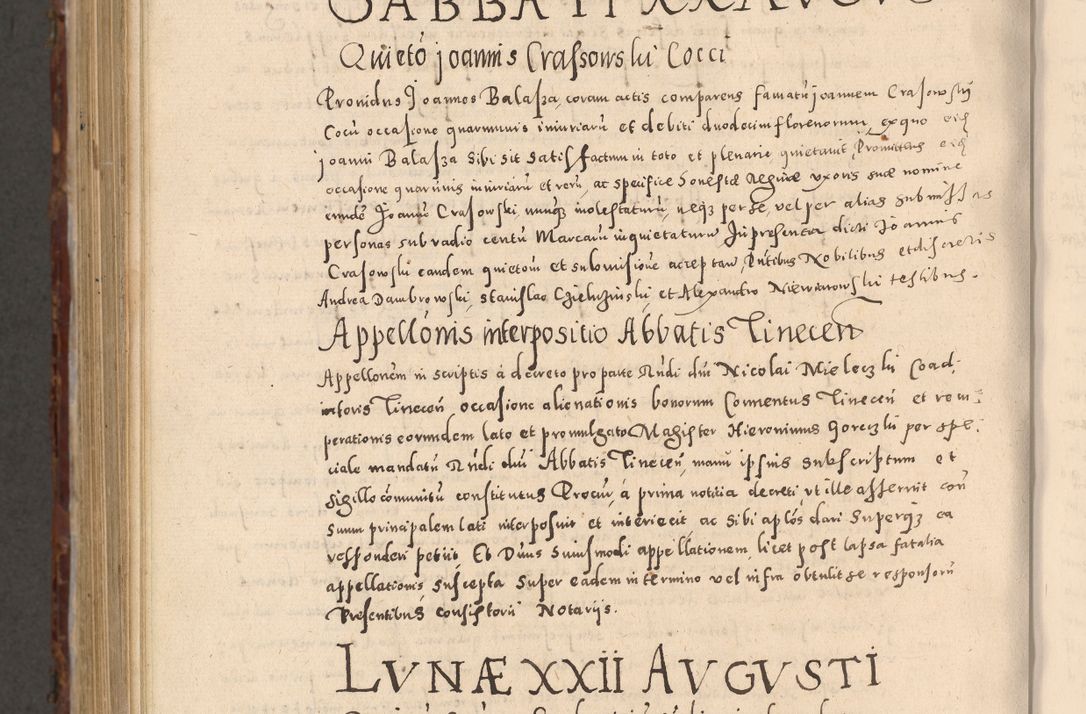 SABBATI XX AUGUS
Quietō joannis Crassowski Cocci
Providus Joannes Balassza, coram actis comparens famatū joannem Crasowsky
Cocū occasione quarumvis iniuriarū et debiti duodecim florenorum, ex quo eid
joanni Balassza sibi sit satisfactum in toto et plenarie, quietavit, Promittens eid
occasione quarumvis iniuriarū et rerū, ac specifice honestæ uxoris suæ nomine
eundē Joannē Crasowski, nunq3 molestaturū, neq3 per se, vel per alias submissas
personas sub vadio centū Marcarū inquietaturū In presentia dicti Joannis
Crasowski eandem quietoīn et submisionē acceptan, Pntibus Nobilibus et discretis
Andrea Dambrowski, Stanislao et Alexandro testibus.
Appellōnis interpositio Abbatis Tinecen
Appellonēm in scriptis à decreto pro parte Rndi dni Nicolai Mieleczki Coad,
iutoris Tinecen, occasione alienationis bonorum Conventus Tinecen et recu:
perationis eorundem lato et promulgato Magister Hieronimus Goreczki per spē:
ciale mandatū Rndi dni Abbatis Tinecen, manu ipsius subscriptum et
sigillo cōmunitū constitutus Procur, à prima notitia decreti, ut ille asseruit con
suum principalem lati interposuit et interiecit ac sibi aplōs dari Superq3 ea
responderi petiit, Et Dnus huiusmodi appellationem, licet post lapsa fatalia
appellationis, suscepta super eadem in termino vel infra obtulit se responsorū
Presentibus consistorii Notariis.
LUNÆ XXII AUGUSTI